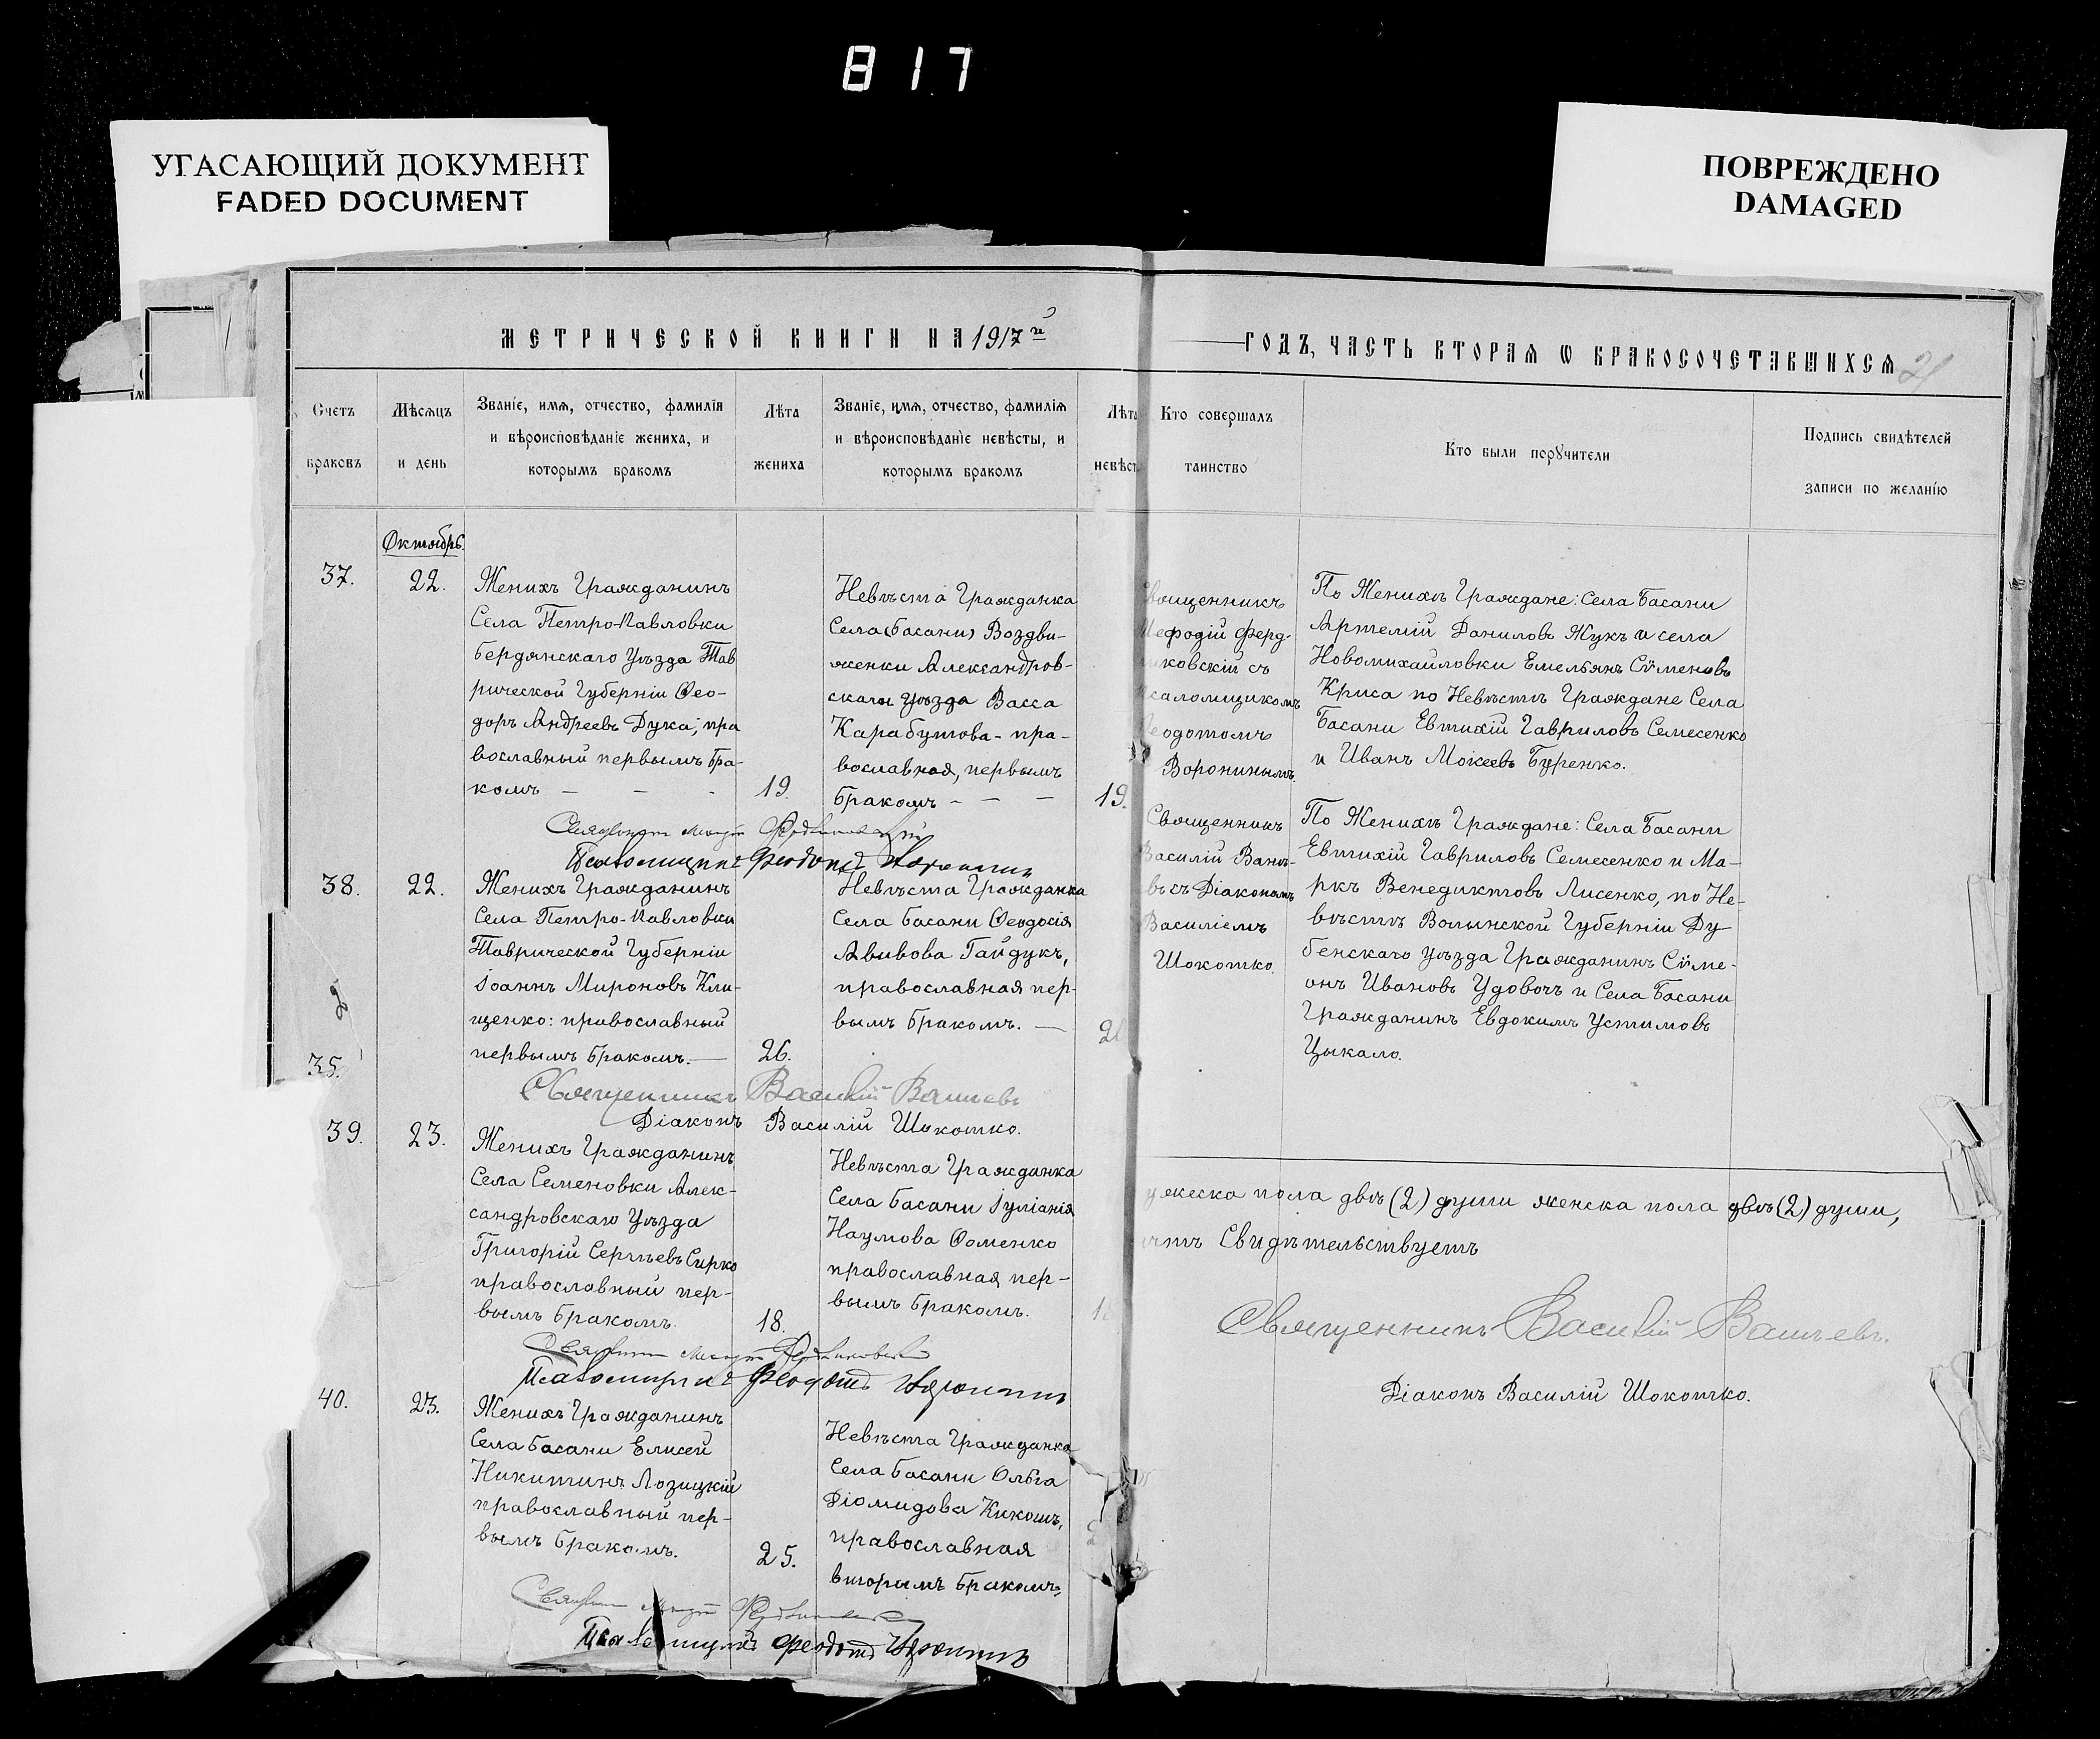 817
УГАСАЮЩИЙ ДОКУМЕНТ
FADED DOCUMENT
ПОВРЕЖДЕНО
DAMAGED
МЕТРИЧЕСКОЙ КНИГИ НА 1917й
ГОДЪ, ЧАСТЬ ВТОРАЯ Ѡ БРАКОСОЧЕТАВШИХСЯ
21
Счетъ
браковъ
Мѣсяцъ
и день
Званіе, имя, отчество, фамилія
и вѣроисповѣданіе жениха, и
которымъ бракомъ
Лѣта
жениха
Званіе, имя, отчество, фамилія
и вѣроисповѣданіе невѣсты, и
которымъ бракомъ
Лѣта
невѣст
Кто совершалъ
таинство
Кто были порꙋчители
Подпись свидѣтелей
записи по желанію
Октябрь
37.
22.
Женихъ Гражданинъ
Села Петро-Павловки
Бердянскаго Уѣзда Тав
рической Губерніи Ѳео-
доръ Андреевъ Дука, пра
вославный первымъ бра-
комъ — — -
19.
Невѣста Гражданка
Села (Басани) Воздви-
женки Александров-
скаго уѣзда Васса
Карабутова - пра-
вославная, первымъ
бракомъ - — —
19.
Священникъ
Мефодій Ферд-
иковскій съ
псаломщикомъ
Ѳеодотомъ
Воронинымъ.
По Женихѣ Граждане: Села Басани
Артемій Даниловъ Жукъ и села
Новомихайловки Емельянъ Сѵменовъ
Криса по Невѣстѣ Граждане Села
Басани Евтихій Гавриловъ Семесенко
и Иванъ Мокеевъ Буренко.
Псаломщикъ Феодотъ Воронинъ
38.
22.
Женихъ Гражданинъ
Села Петро-Павловки
Таврической Губерніи
Іоаннъ Мироновъ Кли-
щенко: православный
первымъ бракомъ. —
26.
Невѣста Гражданка
Села Басани Ѳеодосія
Авивова Гайдукъ,
православная пер-
вымъ бракомъ. —
Священникъ
Василій Ванч-
въ съ Діакономъ
Василіемъ
Шокотко.
По Женихѣ Граждане: Села Басани
Евтихій Гавриловъ Семесенко и Ма-
ркъ Венедиктовъ Лисенко, по Не-
вѣстѣ Волынской Губерніи Ду
бенскаго уѣзда Гражданинъ Сѵме-
онъ Ивановъ Удовочъ и Села Басани
Гражданинъ Евдокимъ Устимовъ
Цыкало.
35.
Священникъ Василій
Діаконъ Василій Шокотко.
39.
23.
Женихъ Гражданинъ
Села Семеновки Алек-
сандровскаго Уѣзда
Григорій Сергѣевъ Сирко
православный пер-
вымъ бракомъ.
18.
Невѣста Гражданка
Села Басани Іуліанія
Наумова Ѳоменко
православная пер-
вымъ бракомъ.
Псаломщикъ Феодотъ Воронинъ
40.
23.
Женихъ Гражданинъ
Села Басани Елисей
Никитинъ Лозицкій
православный пер-
вымъ бракомъ.
25.
Невѣста Гражданка
Села Басани Ольга
Діомидова Кикошъ,
православная
вторымъ бракомъ,
Псаломщикъ Феодотъ Воронинъ
ужеска пола двѣ (2) души женска пола двѣ (2) души,
Свидѣтельствуетъ
Священникъ Василій
Діаконъ Василій Шокотко.